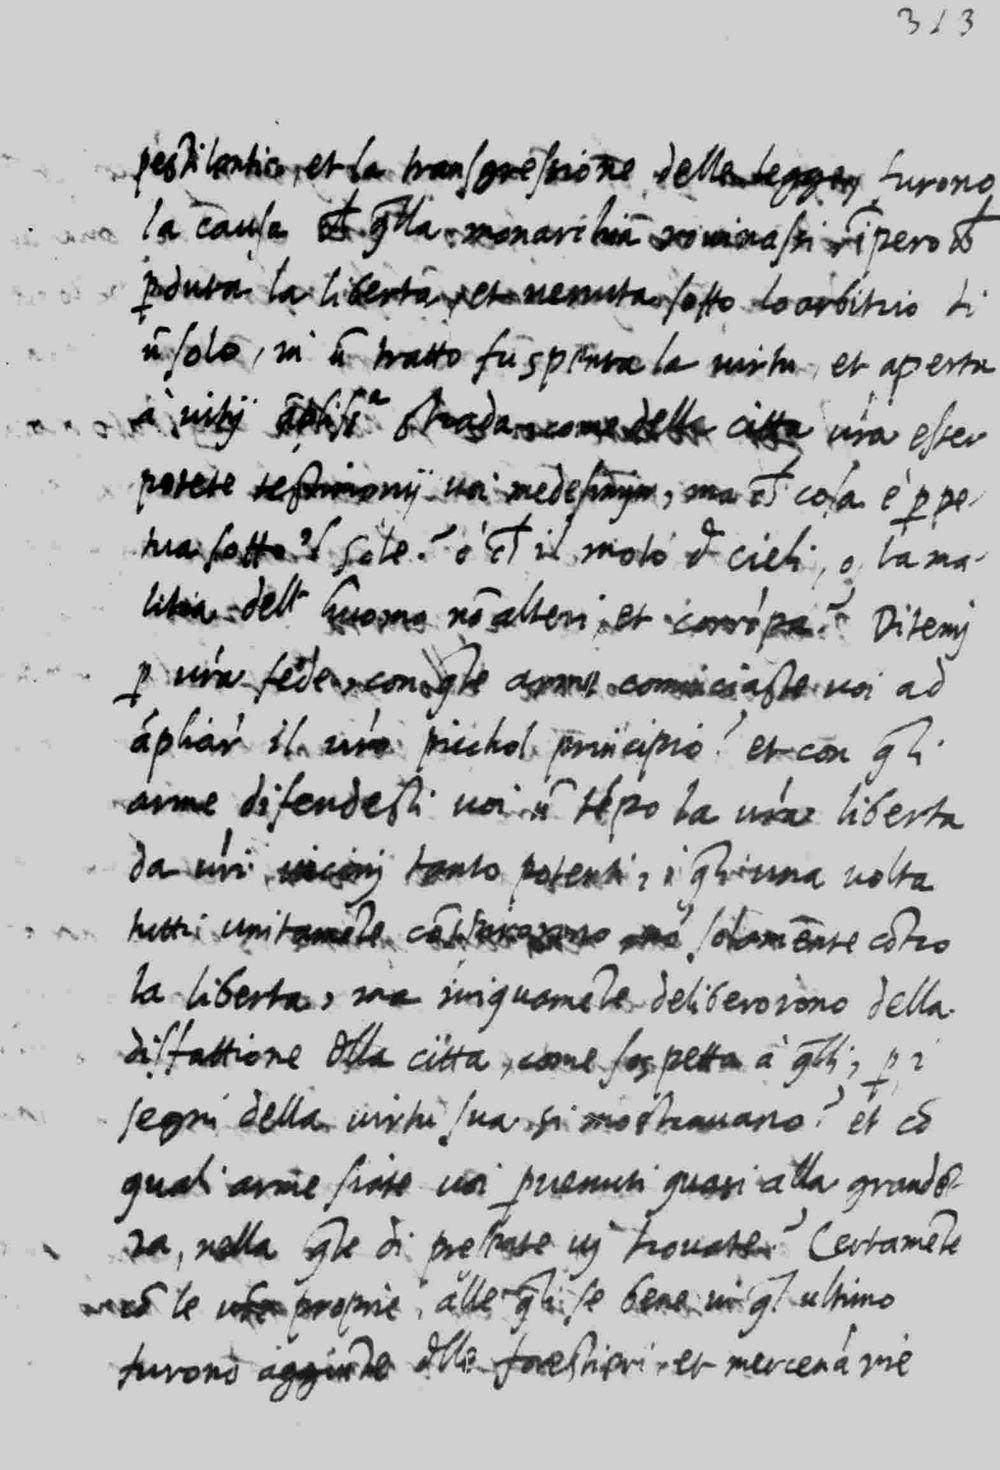 313
pestilentia, et la transgressione delle leggy furono
la causa ch̄ q̄lla monarchia rouinassi īpero ch̄
ꝑduta la liberta, et uenuta sotto lo arbitrio di
ū solo, in ū tratto fu spenta la uirtu, et aperta
a uitij āpliss.a strada, come della citta ūra esser
potete testimonij uoi medesimj, ma ch̄ cosa è ꝑpe-
tua sotto 'l sole? ò ch̄ il moto d̄ cieli, o la ma-
litia dell' huomo nō alteri, et corrōpa? Ditemj
ꝑ ūra fede, con q̄le arme cominciaste uoi ad
āpliar il ūro picchol principio? et con q̄li
arme difendesti uoi ū tēpo la ūra liberta
da ūri uicinj tanto potenti, i q̄li una uolta
tutti unitamēte nō solamēnte cōtro
la liberta, ma iniquamēte deliberorono della
disfattione d̄lla citta, come sospetta à q̄lli, ꝑ i
segni della uirtu sua si mostrauano? et cō
quali arme siate uoi ꝑuenuti quasi alla grandez-
za, nella q̄le di presente uj trouate? Certamēte
cō le ūre proprie, alle q̄li se bene in q̄l ultimo
furono aggiunte d̄lle forestieri, et mercenarie